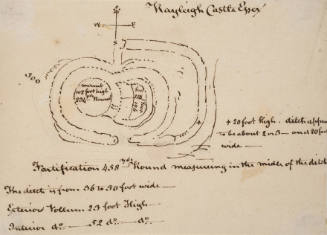 Rayleigh Castle Essex
N E
300
mount
50 feet high
round
+ 20 foot high. ditch appears
to be about 2 or 3 and 20 feet
wide
Fortification 458 Yds Round measuring in the middle of the ditch
The ditch is from 36 to 50 feet wide
Exterior Vallum 23 feet High
Interior do 52 do do